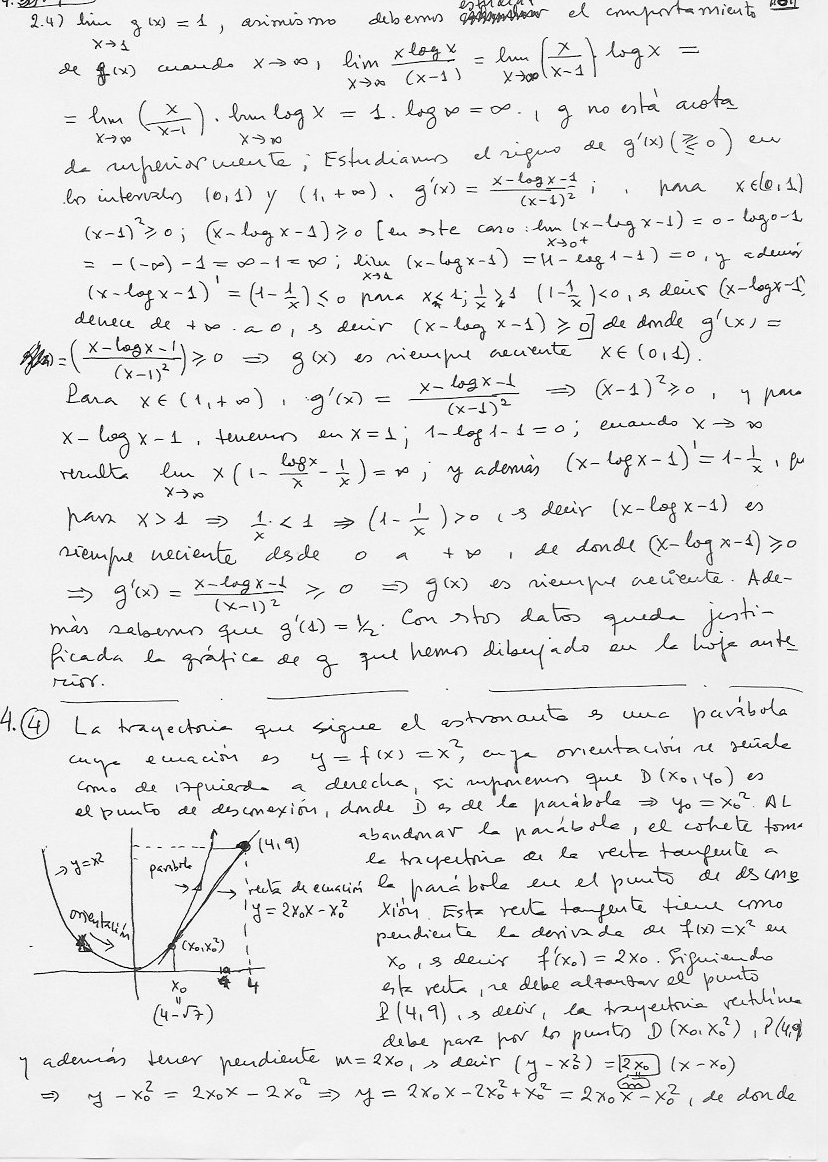 2.4) lim g(x) = 1, asimismo debemos estudiar el comportamiento
x→1
de g(x) cuando x→∞, lim x→∞ x log x / (x-1) = lim x→∞ (x/(x-1)) log x =
= lim x→∞ (x/(x-1)) · lim x→∞ log x = 1 · log ∞ = ∞ ·, g no está acota
da superiormente; Estudiamos el signo de g'(x) (≥≤ 0) en
los intervalos (0,1) y (1,+∞). g'(x) = (x-log x-1)/(x-1)² ; , para x∈(0,1)
(x-1)² ≥ 0 ; (x-log x-1) ≥ 0 [en este caso: lim x→0⁺ (x-log x-1) = 0-log 0-1
= -(-∞) -1 = ∞-1 = ∞ ; lim x→1 (x-log x-1) = (1-log 1-1) = 0, y además
(x-log x-1)' = (1-1/x) ≤ 0 para x≤1; 1/x ≥ 1 (1-1/x)<0, s decir (x-log x-1)
decrece de +∞ a 0, s decir (x-log x-1) ≥ 0] de donde g'(x) =
= ((x-log x-1)/(x-1)²) ≥ 0 ⇒ g(x) es siempre creciente x∈(0,1).
Para x∈(1,+∞), g'(x) = (x-log x-1)/(x-1)² ⇒ (x-1)² ≥ 0, y para
x-log x-1, tenemos en x=1; 1-log 1-1=0; cuando x→∞
resulta lim x→∞ x(1 - log x/x - 1/x) = ∞ ; y además (x-log x-1)' = 1-1/x,
para x>1 ⇒ 1/x < 1 ⇒ (1-1/x) > 0, s decir (x-log x-1) es
siempre creciente desde 0 a +∞, de donde (x-log x-1) ≥ 0
⇒ g'(x) = (x-log x-1)/(x-1)² ≥ 0 ⇒ g(x) es siempre creciente. Ade-
más sabemos que g'(1) = 1/2. Con estos datos queda justi-
ficada la gráfica de g que hemos dibujado en la hoja ante
rior.
4. ④ La trayectoria que sigue el astronauta es una parábola
cuya ecuación es y = f(x) = x², cuya orientación se señala
como de izquierda a derecha, si suponemos que D(x₀,y₀) es
el punto de desconexión, donde D es de la parábola ⇒ y₀ = x₀². AL
abandonar la parábola, el cohete toma
la trayectoria de la recta tangente a
la parábola en el punto de descone
xión. Esta recta tangente tiene como
pendiente la derivada de f(x) = x² en
x₀, s decir f'(x₀) = 2x₀. Siguiendo
esta recta, se debe alcanzar el punto
P(4,9), s decir, la trayectoria rectilínea
debe pasar por los puntos D(x₀,x₀²), P(4,9)
→ y=x²
orientación
parábola
(4,9)
→ recta de ecuación
y = 2x₀x - x₀²
(x₀,x₀²)
x₀
4
"
(4-√7)
y además tener pendiente m = 2x₀, s decir (y-x₀²) = 2x₀ (x-x₀)
m
⇒ y - x₀² = 2x₀x - 2x₀² ⇒ y = 2x₀x - 2x₀² + x₀² = 2x₀x - x₀², de donde